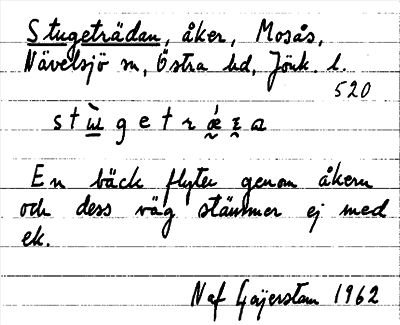 Stugeträdan, åker, Mosås,
Nävelsjö sn, Östra hd, Jönk. l.
520
En bäck flyter genom åkern
och dess väg stämmer ej med
ek.
Naf Gajerstam 1962